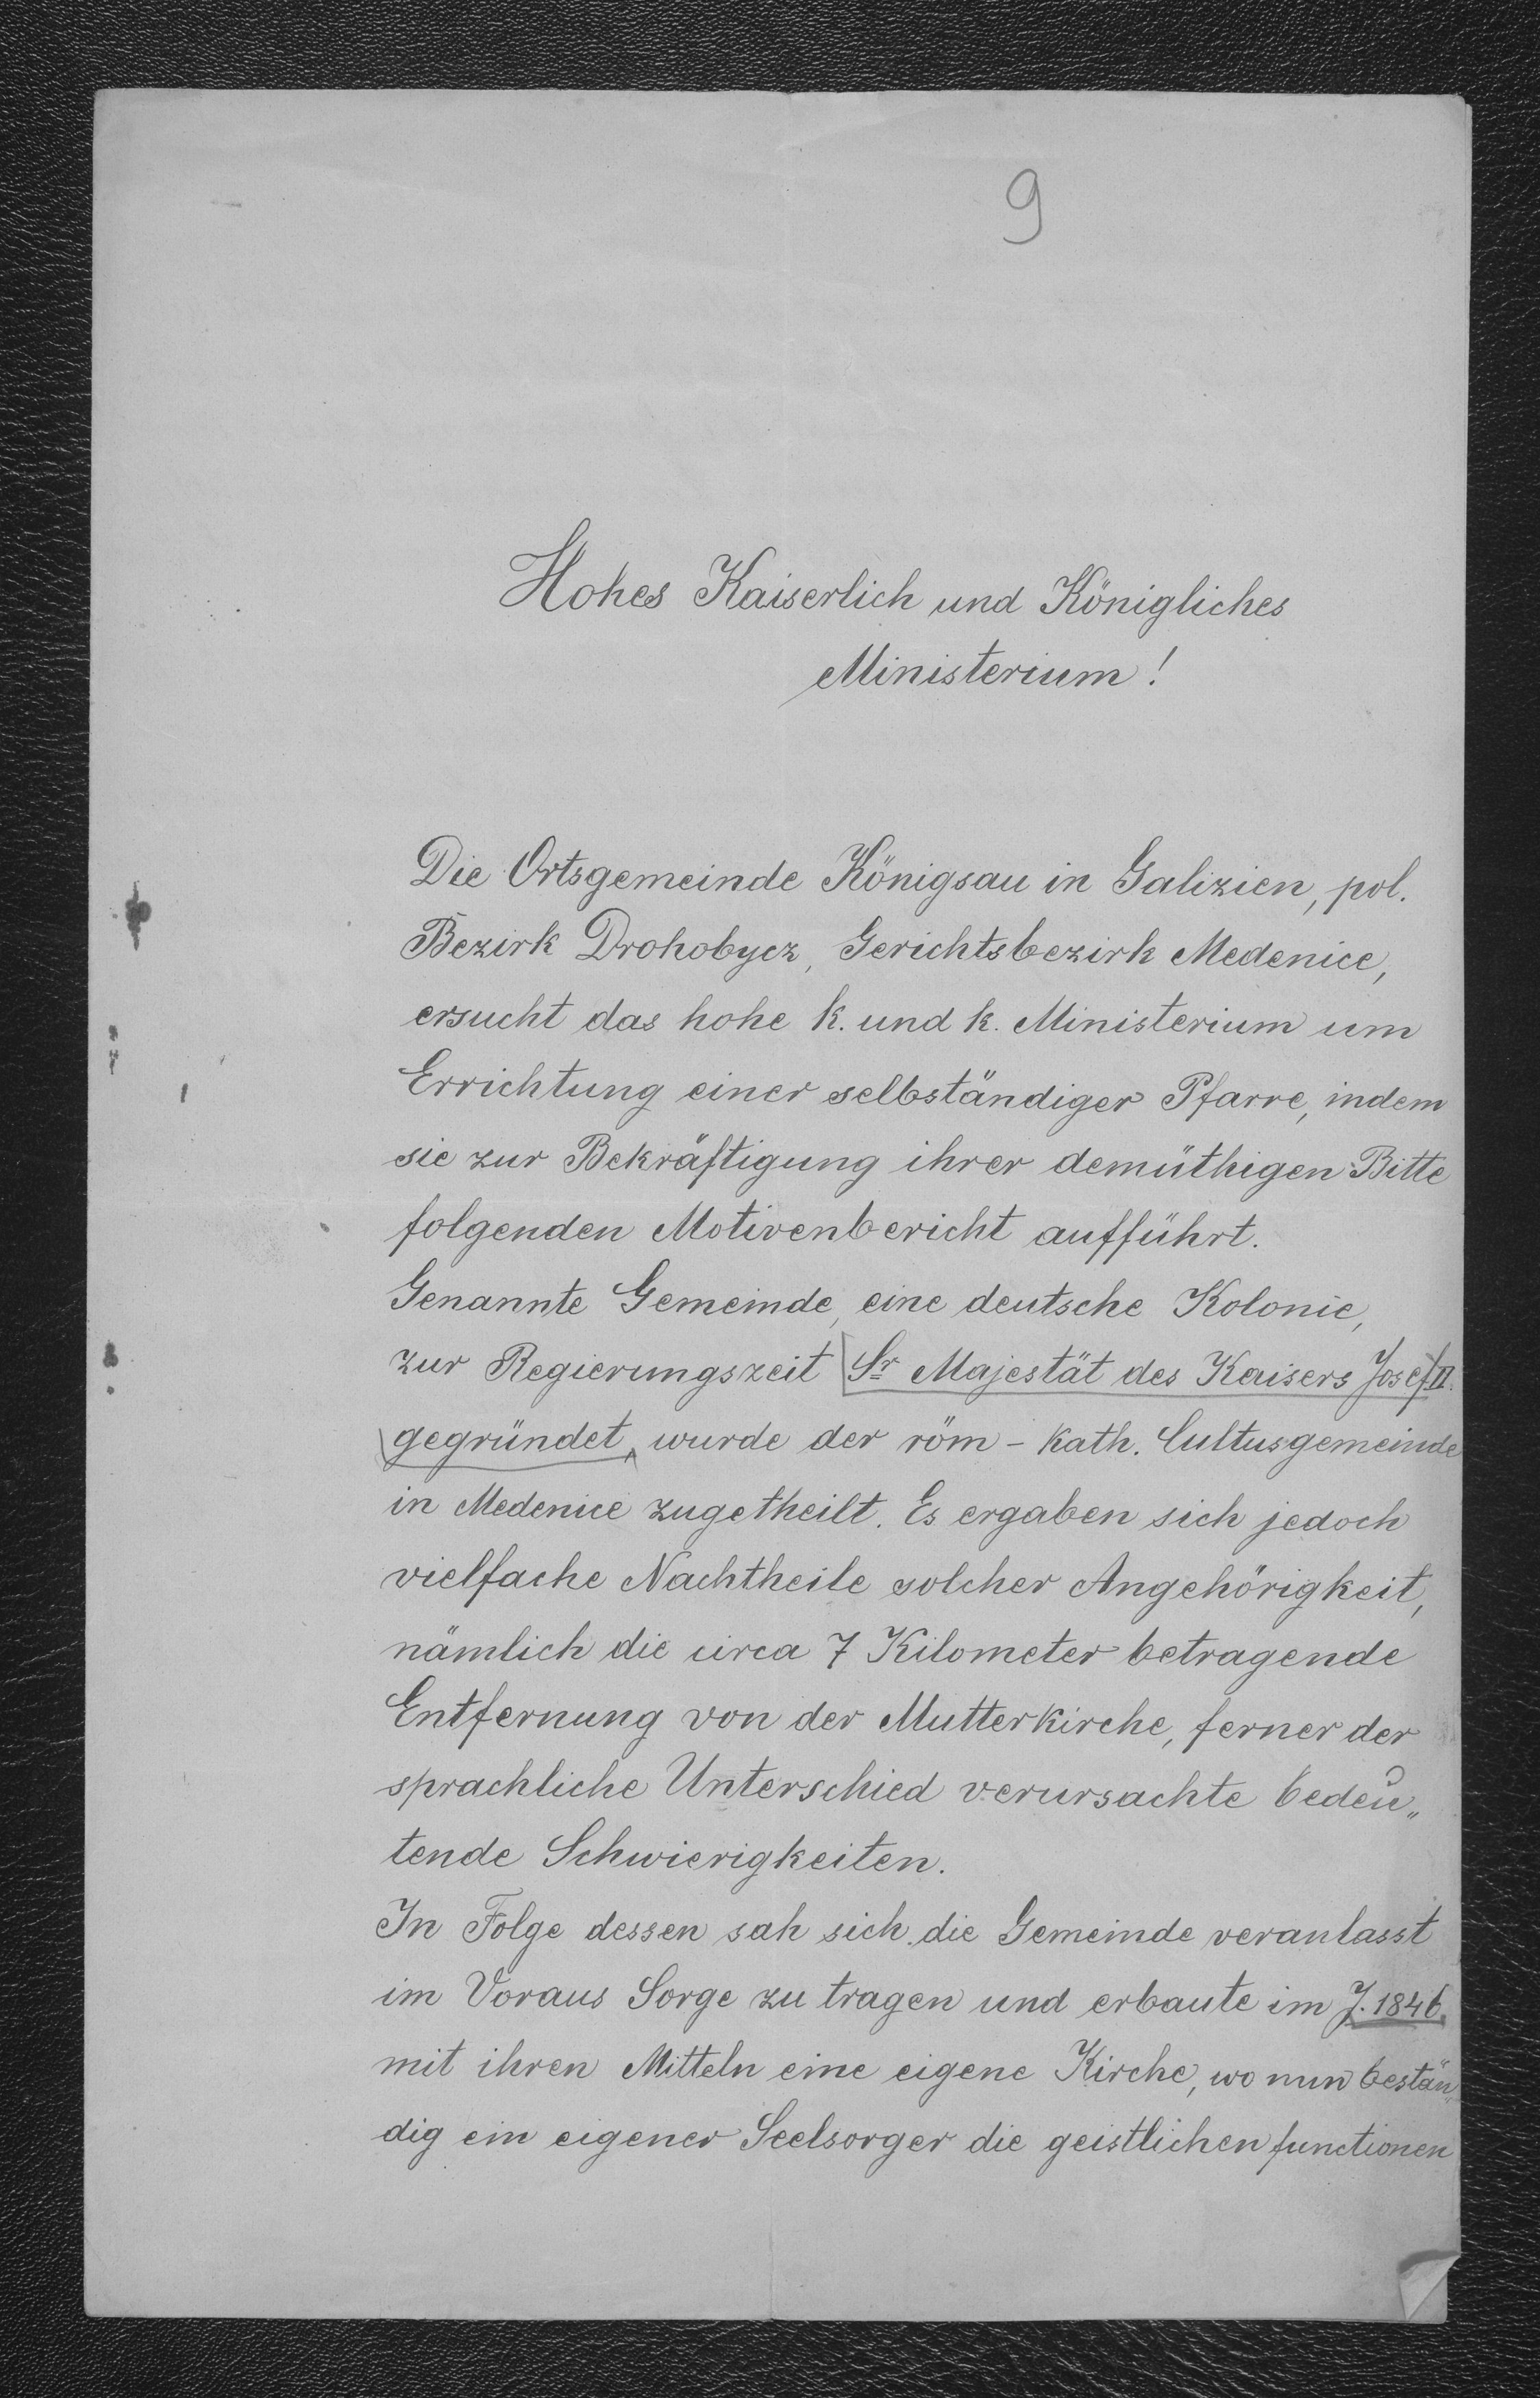 9
Hohes Kaiserlich und Königliches
Ministerium!
Die Ortsgemeinde Königsau in Galizien, pol.
Bezirk Drohobycz, Gerichtsbezirk Medenice,
ersucht das hohe k. und k. Ministerium um
Errichtung einer selbständiger Pfarre, indem
sie zur Bekräftigung ihrer demüthigen Bitte
folgenden Motivenbericht aufführt.
Genannte Gemeinde, eine deutsche Kolonie,
zur Regierungszeit Sr Majestät des Kaisers Josef II.
gegründet, wurde der röm-kath. Cultusgemeinde
in Medenice zugetheilt. Es ergaben sich jedoch
vielfache Nachtheile solcher Angehörigkeit,
nämlich die circa 7 Kilometer betragende
Entfernung von der Mutterkirche, ferner der
sprachliche Unterschied verursachte bedeu„
tende Schwierigkeiten.
In Folge dessen sah sich die Gemeinde veranlasst
im Voraus Sorge zu tragen und erbaute im J. 1846.
mit ihren Mitteln eine eigene Kirche, wo nun bestän„
dig ein eigener Seelsorger die geistlichen functionen